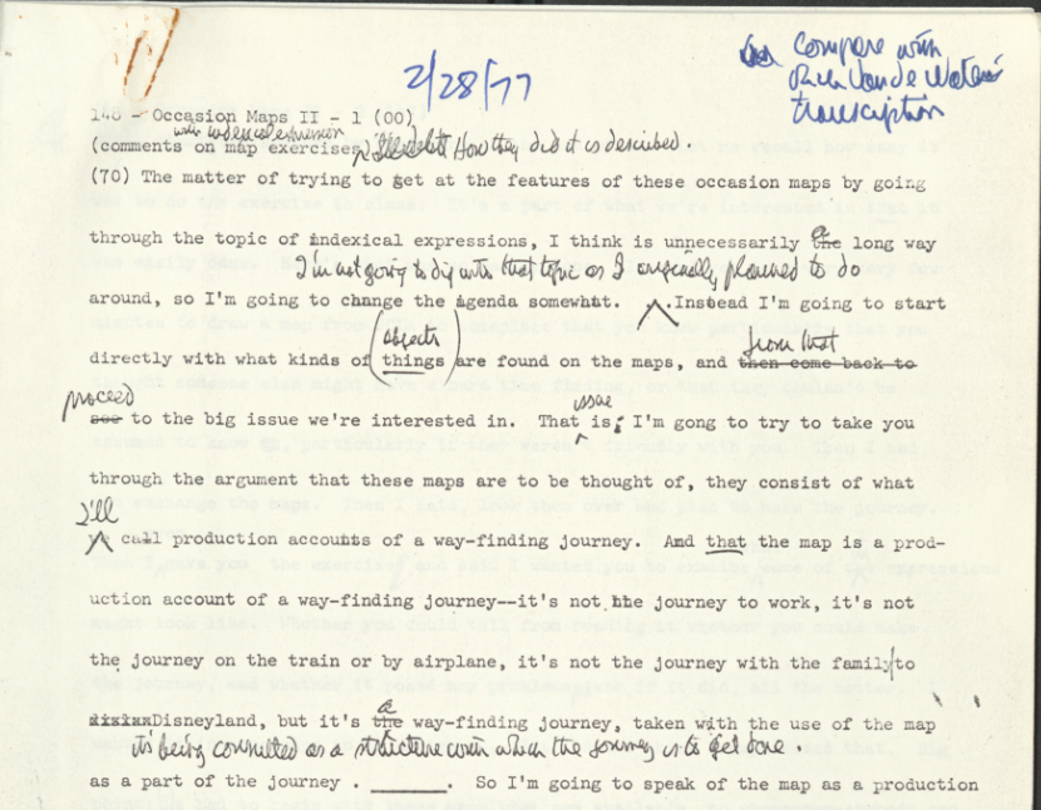 2/28/77
Compare with
Van de Water's
transcription
148 - Occasion Maps II - 1 (00)
with indexical expression
(comments on map exercises) How they did it is described.
(70) The matter of trying to get at the features of these occasion maps by going
through the topic of indexical expressions, I think is unnecessarily the long way
I'm not going to dig with that topic as I originally planned to do
around, so I'm going to change the agenda somewhat. Instead I'm going to start
objects
from that
directly with what kinds of things are found on the maps, and then come back to
proceed
issue
see to the big issue we're interested in. That is; I'm gong to try to take you
through the argument that these maps are to be thought of, they consist of what
I'll
call production accounts of a way-finding journey. And that the map is a prod-
uction account of a way-finding journey--it's not the journey to work, it's not
the journey on the train or by airplane, it's not the journey with the family/to
a
Disneyland, but it's the way-finding journey, taken with the use of the map
its being consulted as a structure with which the journey is to get done.
as a part of the journey . ________. So I'm going to speak of the map as a production